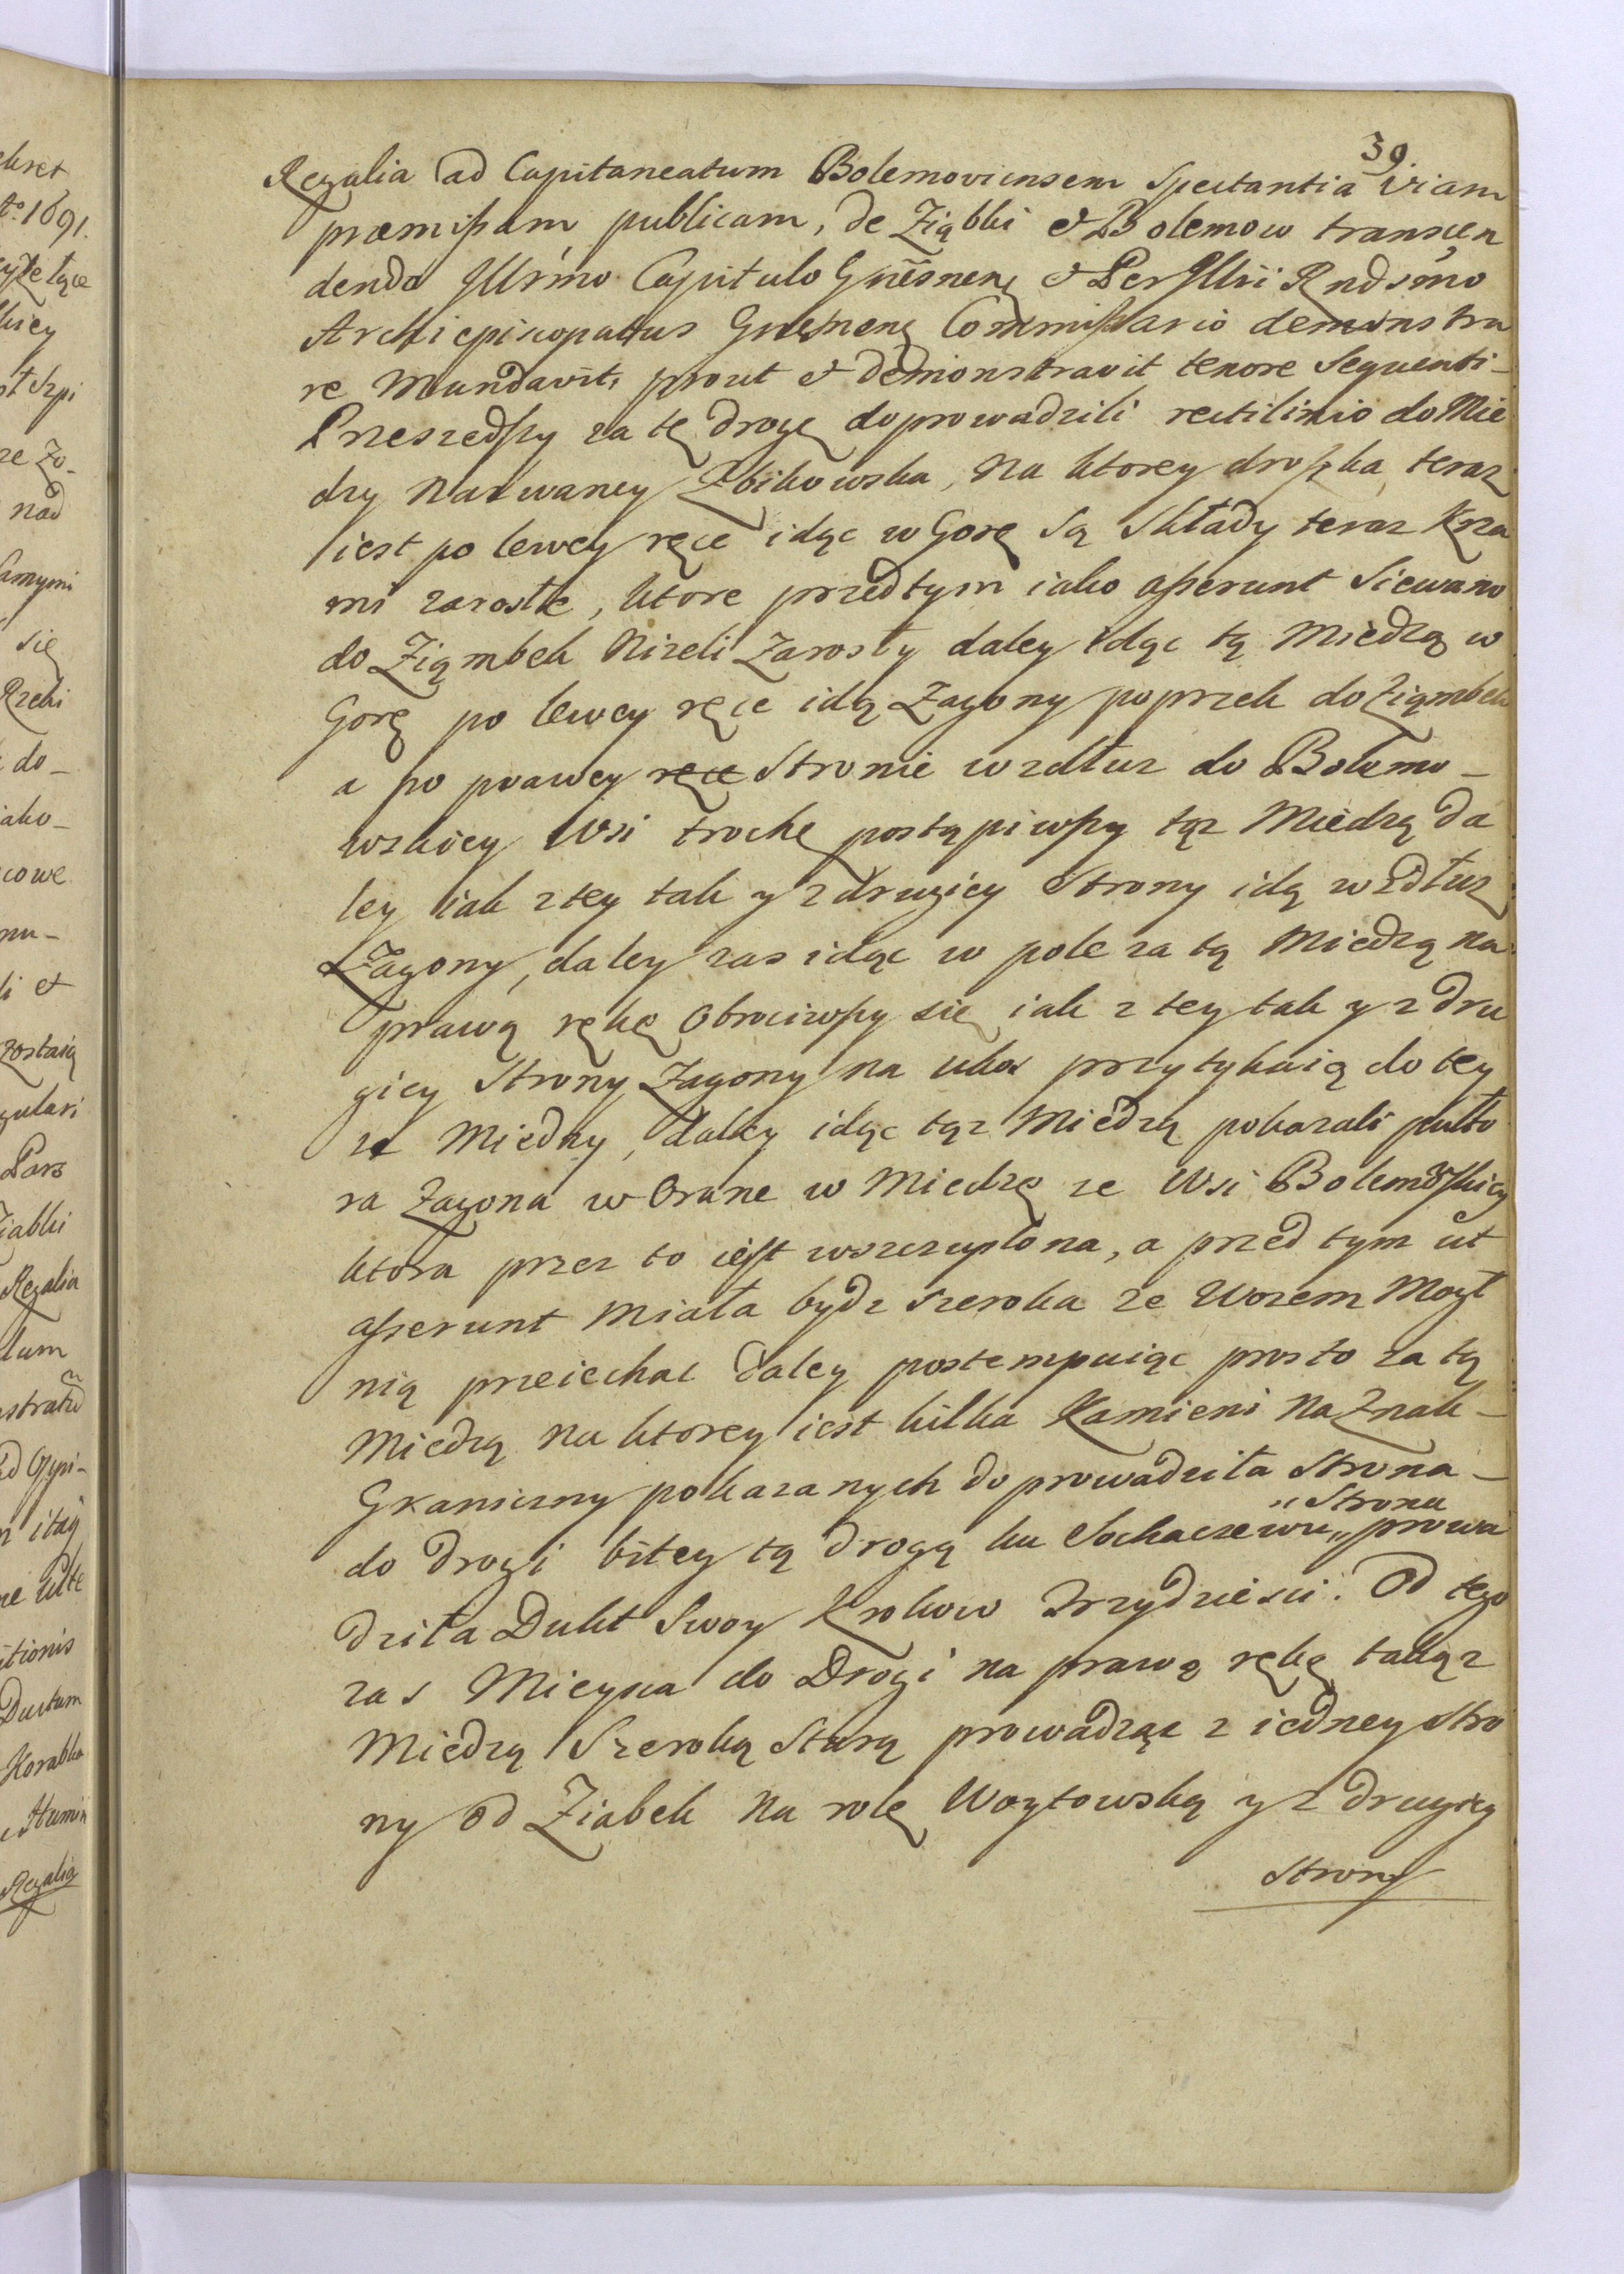 39.
Regalia ad Capitaneatum Bolemoviensem Spectantia viam
præmissam publicam, de Ziąbki et Bolemow transcen
dendo Illrimo Capitulo Gnesnen et Per Illri Rndsmo
Archiepiscopatus Gnesnen Commissario demonstra
re Mandavit, prout et demonstravit tenore Sequenti_
Przeszedszy za tę drogę doprowadzili rectilinio do Mie
dzy Nazwaney Zbikowska, Na ktorey droszka teraz
iest po lewey ręce idąc w Gorę Są Składy teraz Krza
mi zarosłe, ktore przedtym iako asserunt Siewano
do Ziąmbek Nizeli Zarosły daley idąc tą Miedzą w
Gorę po lewey ręce idą Zagony poprzek do Ziąmbek
a po prawey ręce Stronie wzdłuz do Bolemo_
wskiey Wsi trochę postąpiwszy tąz Miedzą da
ley iak z tey tak y z drugiey Strony idą wzdłuz
Zagony, daley zas idąc w pole za tą Miedzą na
prawą rękę Obrociwszy się iak z tey tak y z dru
giey Strony Zagony na ukos przytykaią do tey
ze Miedzy, daley idąc tąz Miedzą pokazali pułto
ra Zagona w Orane w Miedzę ze Wsi Bolemowskiey
ktora przez to iest wszczuplona, a przed tym ut
asserunt Miała bydz szeroka ze Wozem Mogł
nią przeiechac daley postempuiąc prosto za tą
Miedzą na ktorey iest kilka Kamieni Na Znak_
Graniczny pokazanych doprowadziła Strona_
do Drogi bitey tą Drogą ku Sochaczewu „prowa
„Strona
dziła Dukt Swoy Krokow Trzydziesci. Od tego
zas Mieysca do Drogi na prawą rękę takąz
Miedzą Szeroką Starą prowadząc z iedney Stro
ny od Ziabek na rolę Woytowską y z Drugiey
Strony